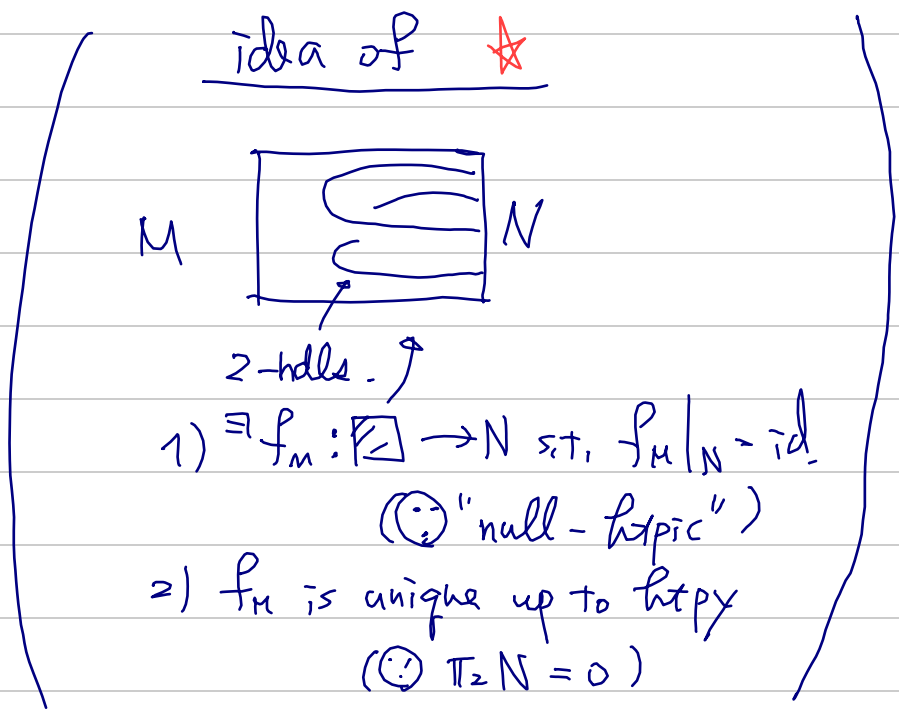 idea of ☆
M N
2-hdls.
1) ∃ f_M : □ → N s.t. f_M|_N = id.
(∵ "null-htpic")
2) f_M is unique up to htpy
(∵ π₂N = 0)